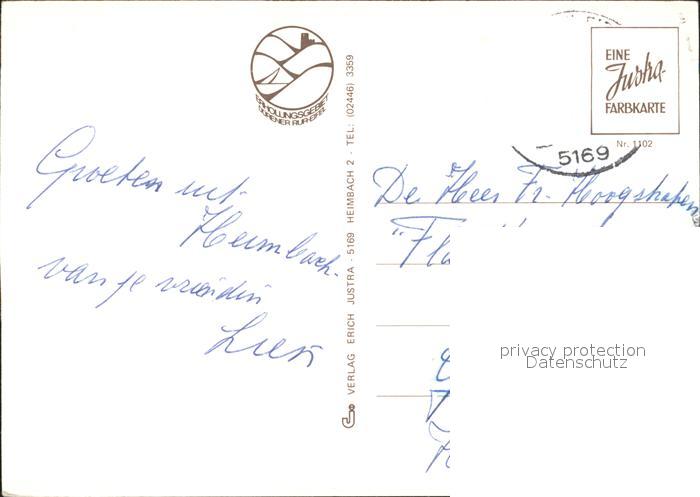 Groeten uit
Heimbach.
van je vriendin
ERHOLUNGSGEBIET
DÜRENER RUR-EIFEL
VERLAG ERICH JUSTRA - 5169 HEIMBACH 2 - TEL.: (02446) 3359
EINE
Justra-
FARBKARTE
Nr. 1102
5169
De Heer Fr. Hoogshaten
privacy protection
Datenschutz